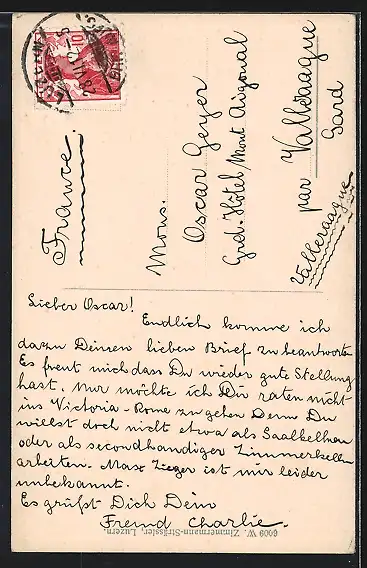 France.
Mons.
Oscar Geyer
Grd. Hôtel Mont Aigoual
par Valleraugue
Gard
Valleraugue
Lieber Oscar!
Endlich komme ich
dazu Deinen lieben Brief zu beantworten
Es freut mich dass Du wieder gute Stellung
hast. Nur möchte ich Dir raten nicht
ins Victoria-Rome zu gehen Denn Du
willst doch nicht etwa als Saalkellner
oder als secondhandiger Zimmerkellner
arbeiten. Max Zieger ist mir leider
unbekannt.
Es grüßt Dich Dein
Freund Charlie.
6609 W. Zimmermann-Strässler, Luzern.
10